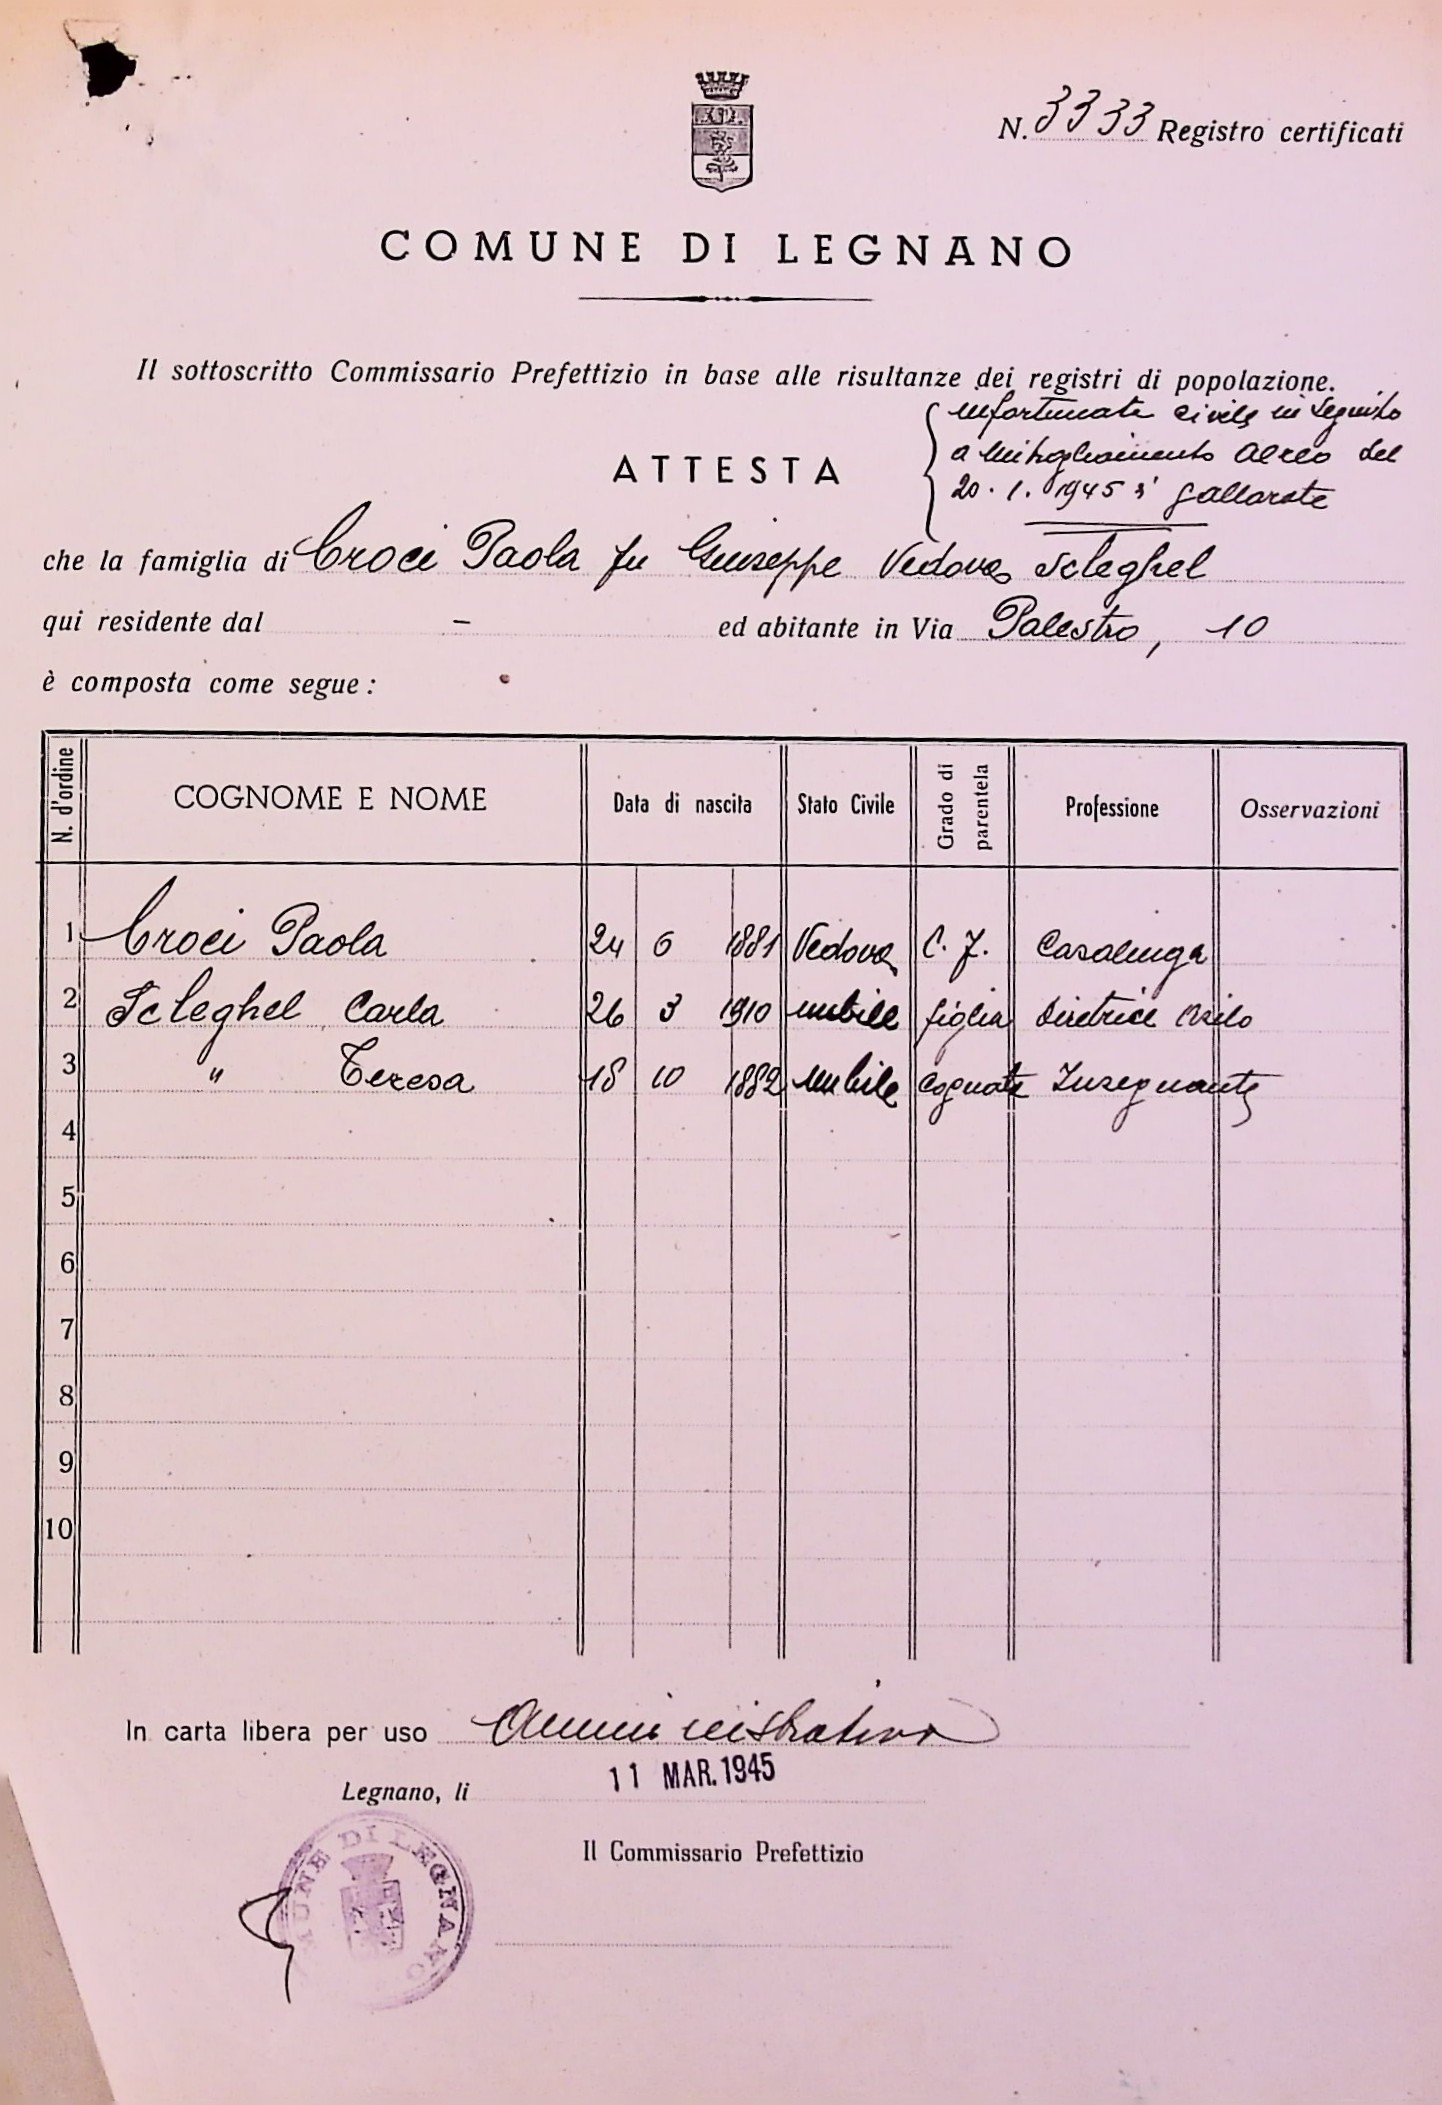 N. 3333 Registro certificati
COMUNE DI LEGNANO
Il sottoscritto Commissario Prefettizio in base alle risultanze dei registri di popolazione.
infortunata civile in seguito
a mitragliamento aereo del
20.1.1945 Gallarate
ATTESTA
che la famiglia di Croci Paola fu Giuseppe Vedova Scleghel
qui residente dal - ed abitante in Via Palestro, 10
è composta come segue :
N. d'ordine COGNOME E NOME Data di nascita Stato Civile Grado di parentela Professione Osservazioni
1 Croci Paola 24 6 1881 Vedova C. F. Casalinga
2 Scleghel Carla 26 3 1910 nubile figlia Direttrice Asilo
3 " Teresa 18 10 1882 nubile cognata Insegnante
4
5
6
7
8
9
10
In carta libera per uso Amministrativo
Legnano, li 11 MAR. 1945
Il Commissario Prefettizio
COMUNE DI LEGNANO